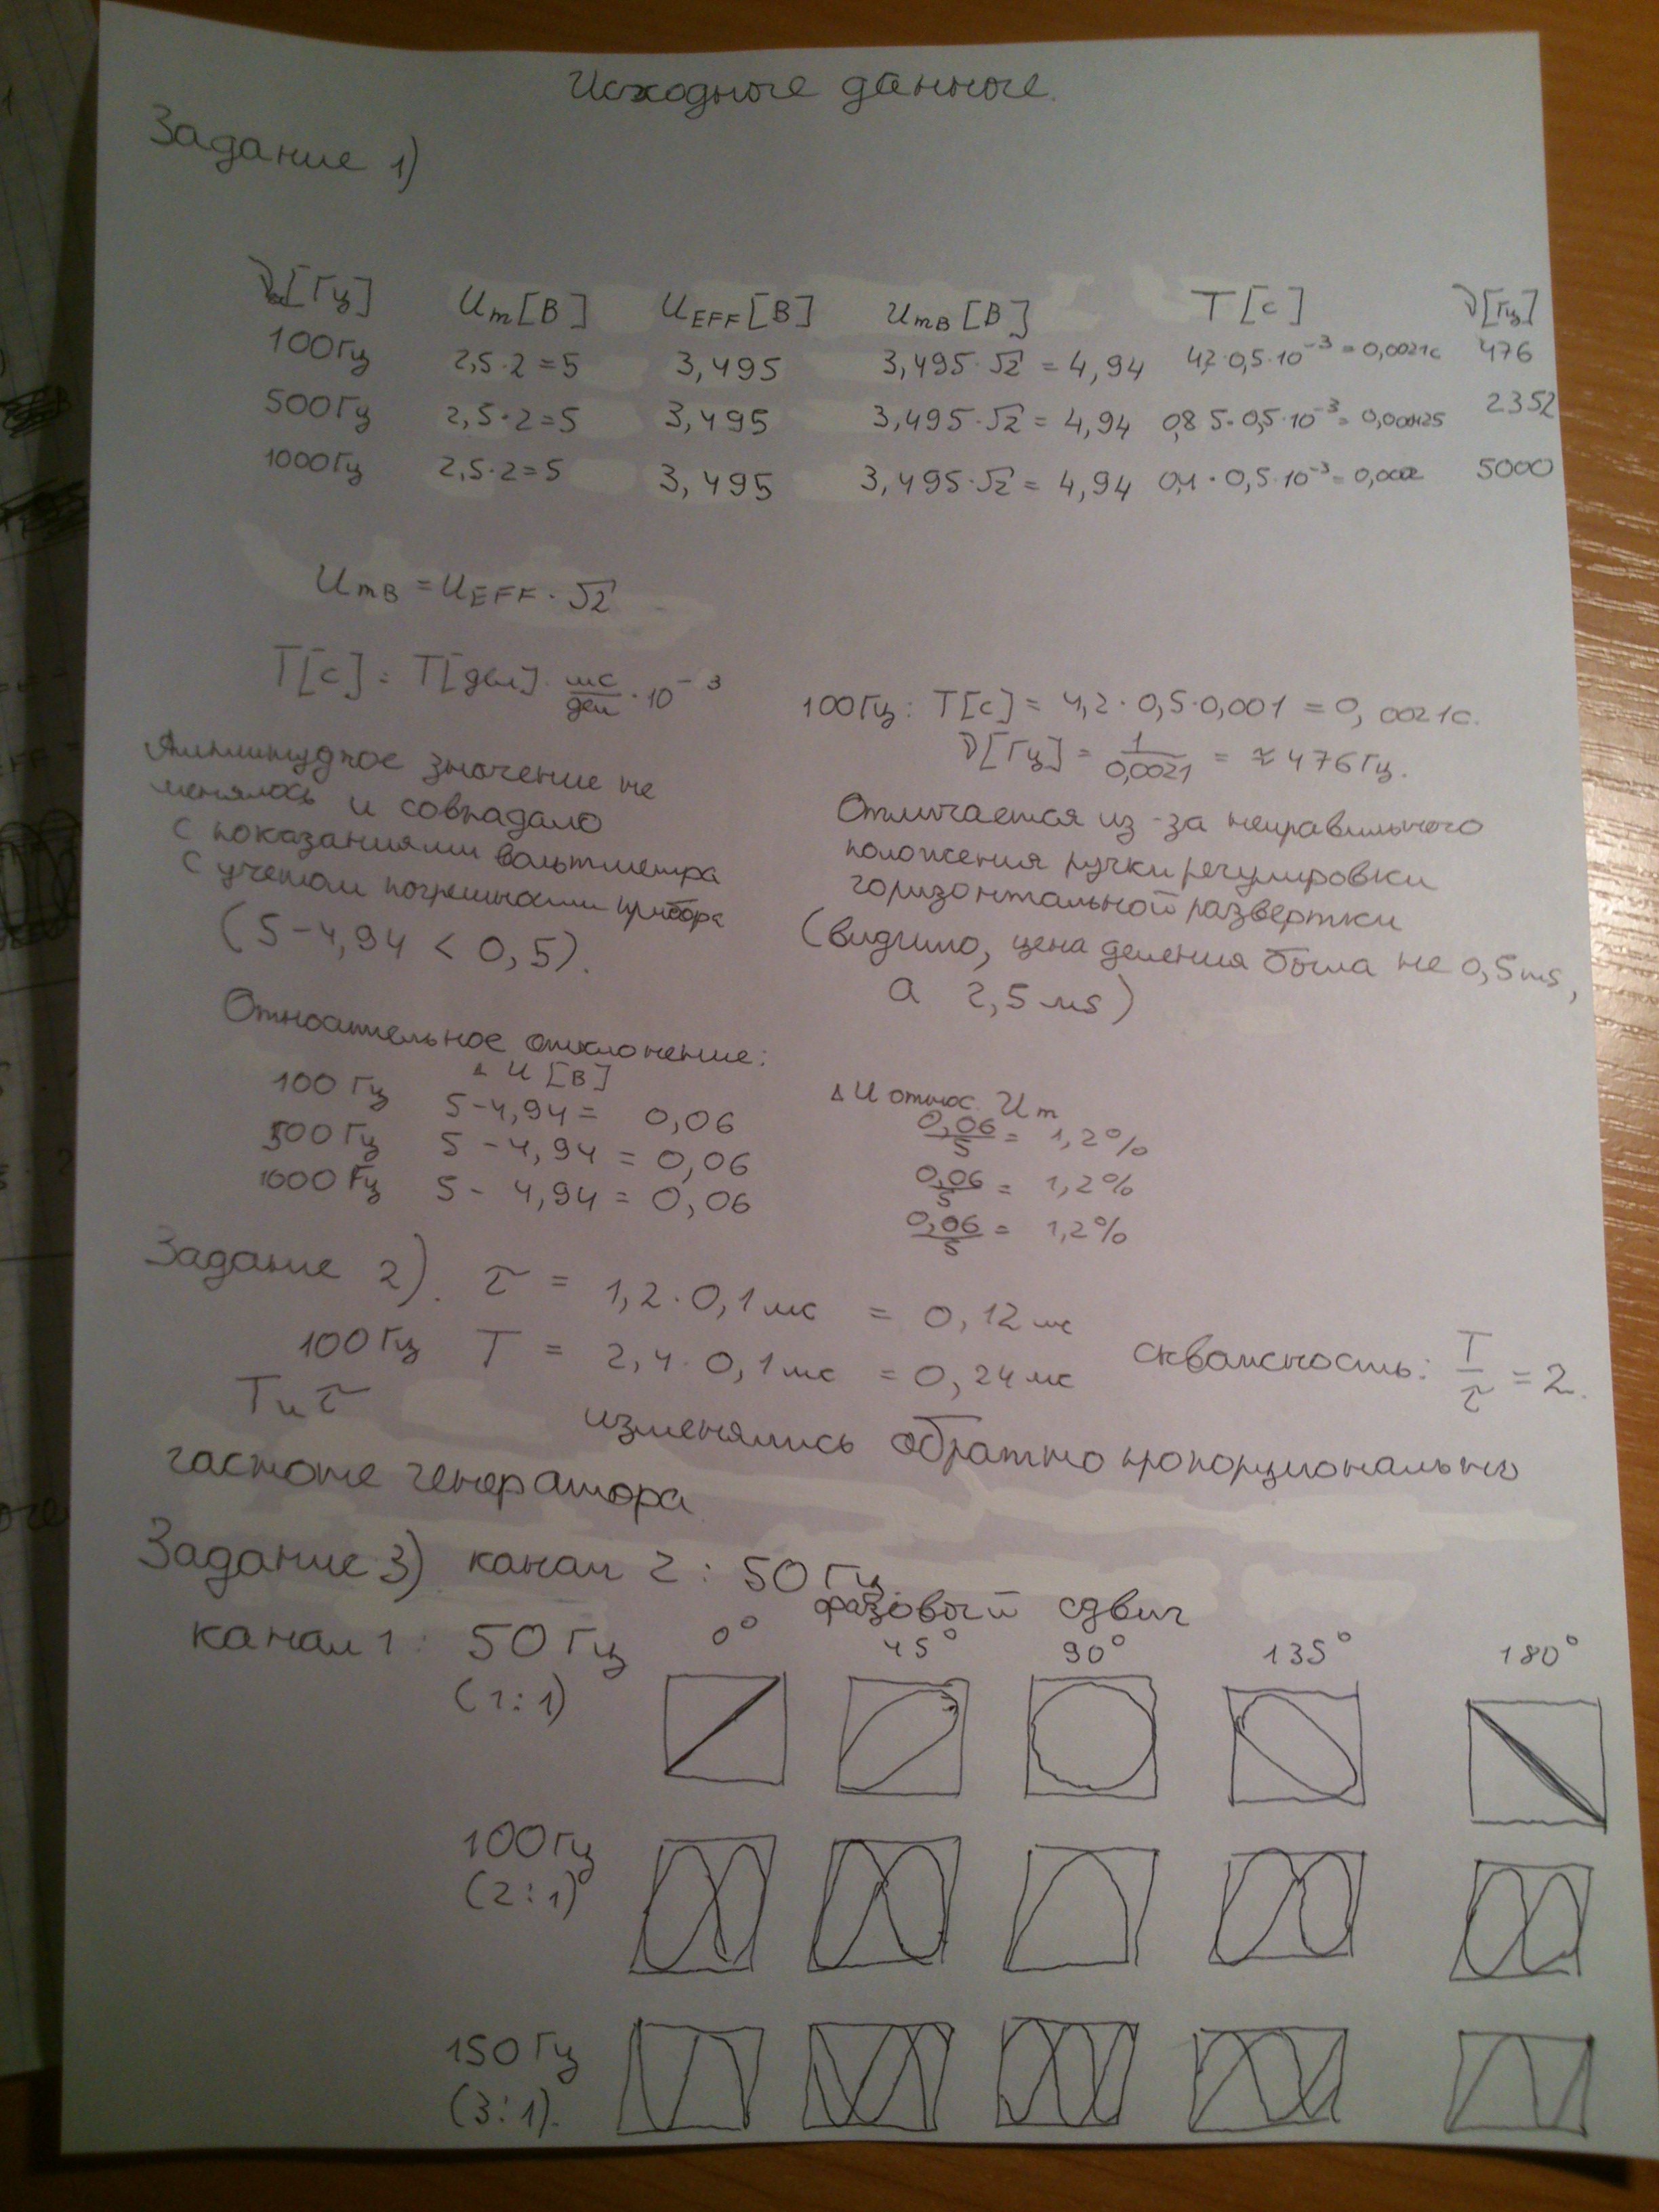 Исходные данные.
Задание 1)
ν[Гц] Um[В] UEFF[В] UmB[В] T[с] ν[Гц]
100Гц 2,5·2=5 3,495 3,495·√2 = 4,94 4,2·0,5·10⁻³ = 0,0021с 476
500Гц 2,5·2=5 3,495 3,495·√2 = 4,94 0,85·0,5·10⁻³ = 0,000425 2352
1000Гц 2,5·2=5 3,495 3,495·√2 = 4,94 0,4·0,5·10⁻³ = 5000
UmB = UEFF · √2
T[с] = T[дел] · мс/дел · 10⁻³
100Гц: T[с] = 4,2·0,5·0,001 = 0,0021с.
ν[Гц] = 1/0,0021 = ≈ 476Гц.
Амплитудное значение не
менялось и совпадало
с показаниями вольтметра
с учетом погрешности прибора
(5-4,94 < 0,5).
Отличается из-за неправильного
положения ручки регулировки
горизонтальной развертки
(видимо, цена деления была не 0,5ms,
а 2,5 ms)
Относительное отклонение:
Δ U [В] Δ U относ. Um
100 Гц 5-4,94 = 0,06 0,06/5 = 1,2%
500 Гц 5-4,94 = 0,06 0,06/5 = 1,2%
1000 Гц 5-4,94 = 0,06 0,06/5 = 1,2%
Задание 2). τ = 1,2·0,1мс = 0,12 мс
100Гц T = 2,4·0,1мс = 0,24мс скважность: T/τ = 2.
T и τ изменялись обратно пропорционально
частоте генератора
Задание 3) канал 2: 50 Гц.
фазовый сдвиг
канал 1: 50 Гц 0° 45° 90° 135° 180°
(1:1)
100Гц
(2:1)
150Гц
(3:1).